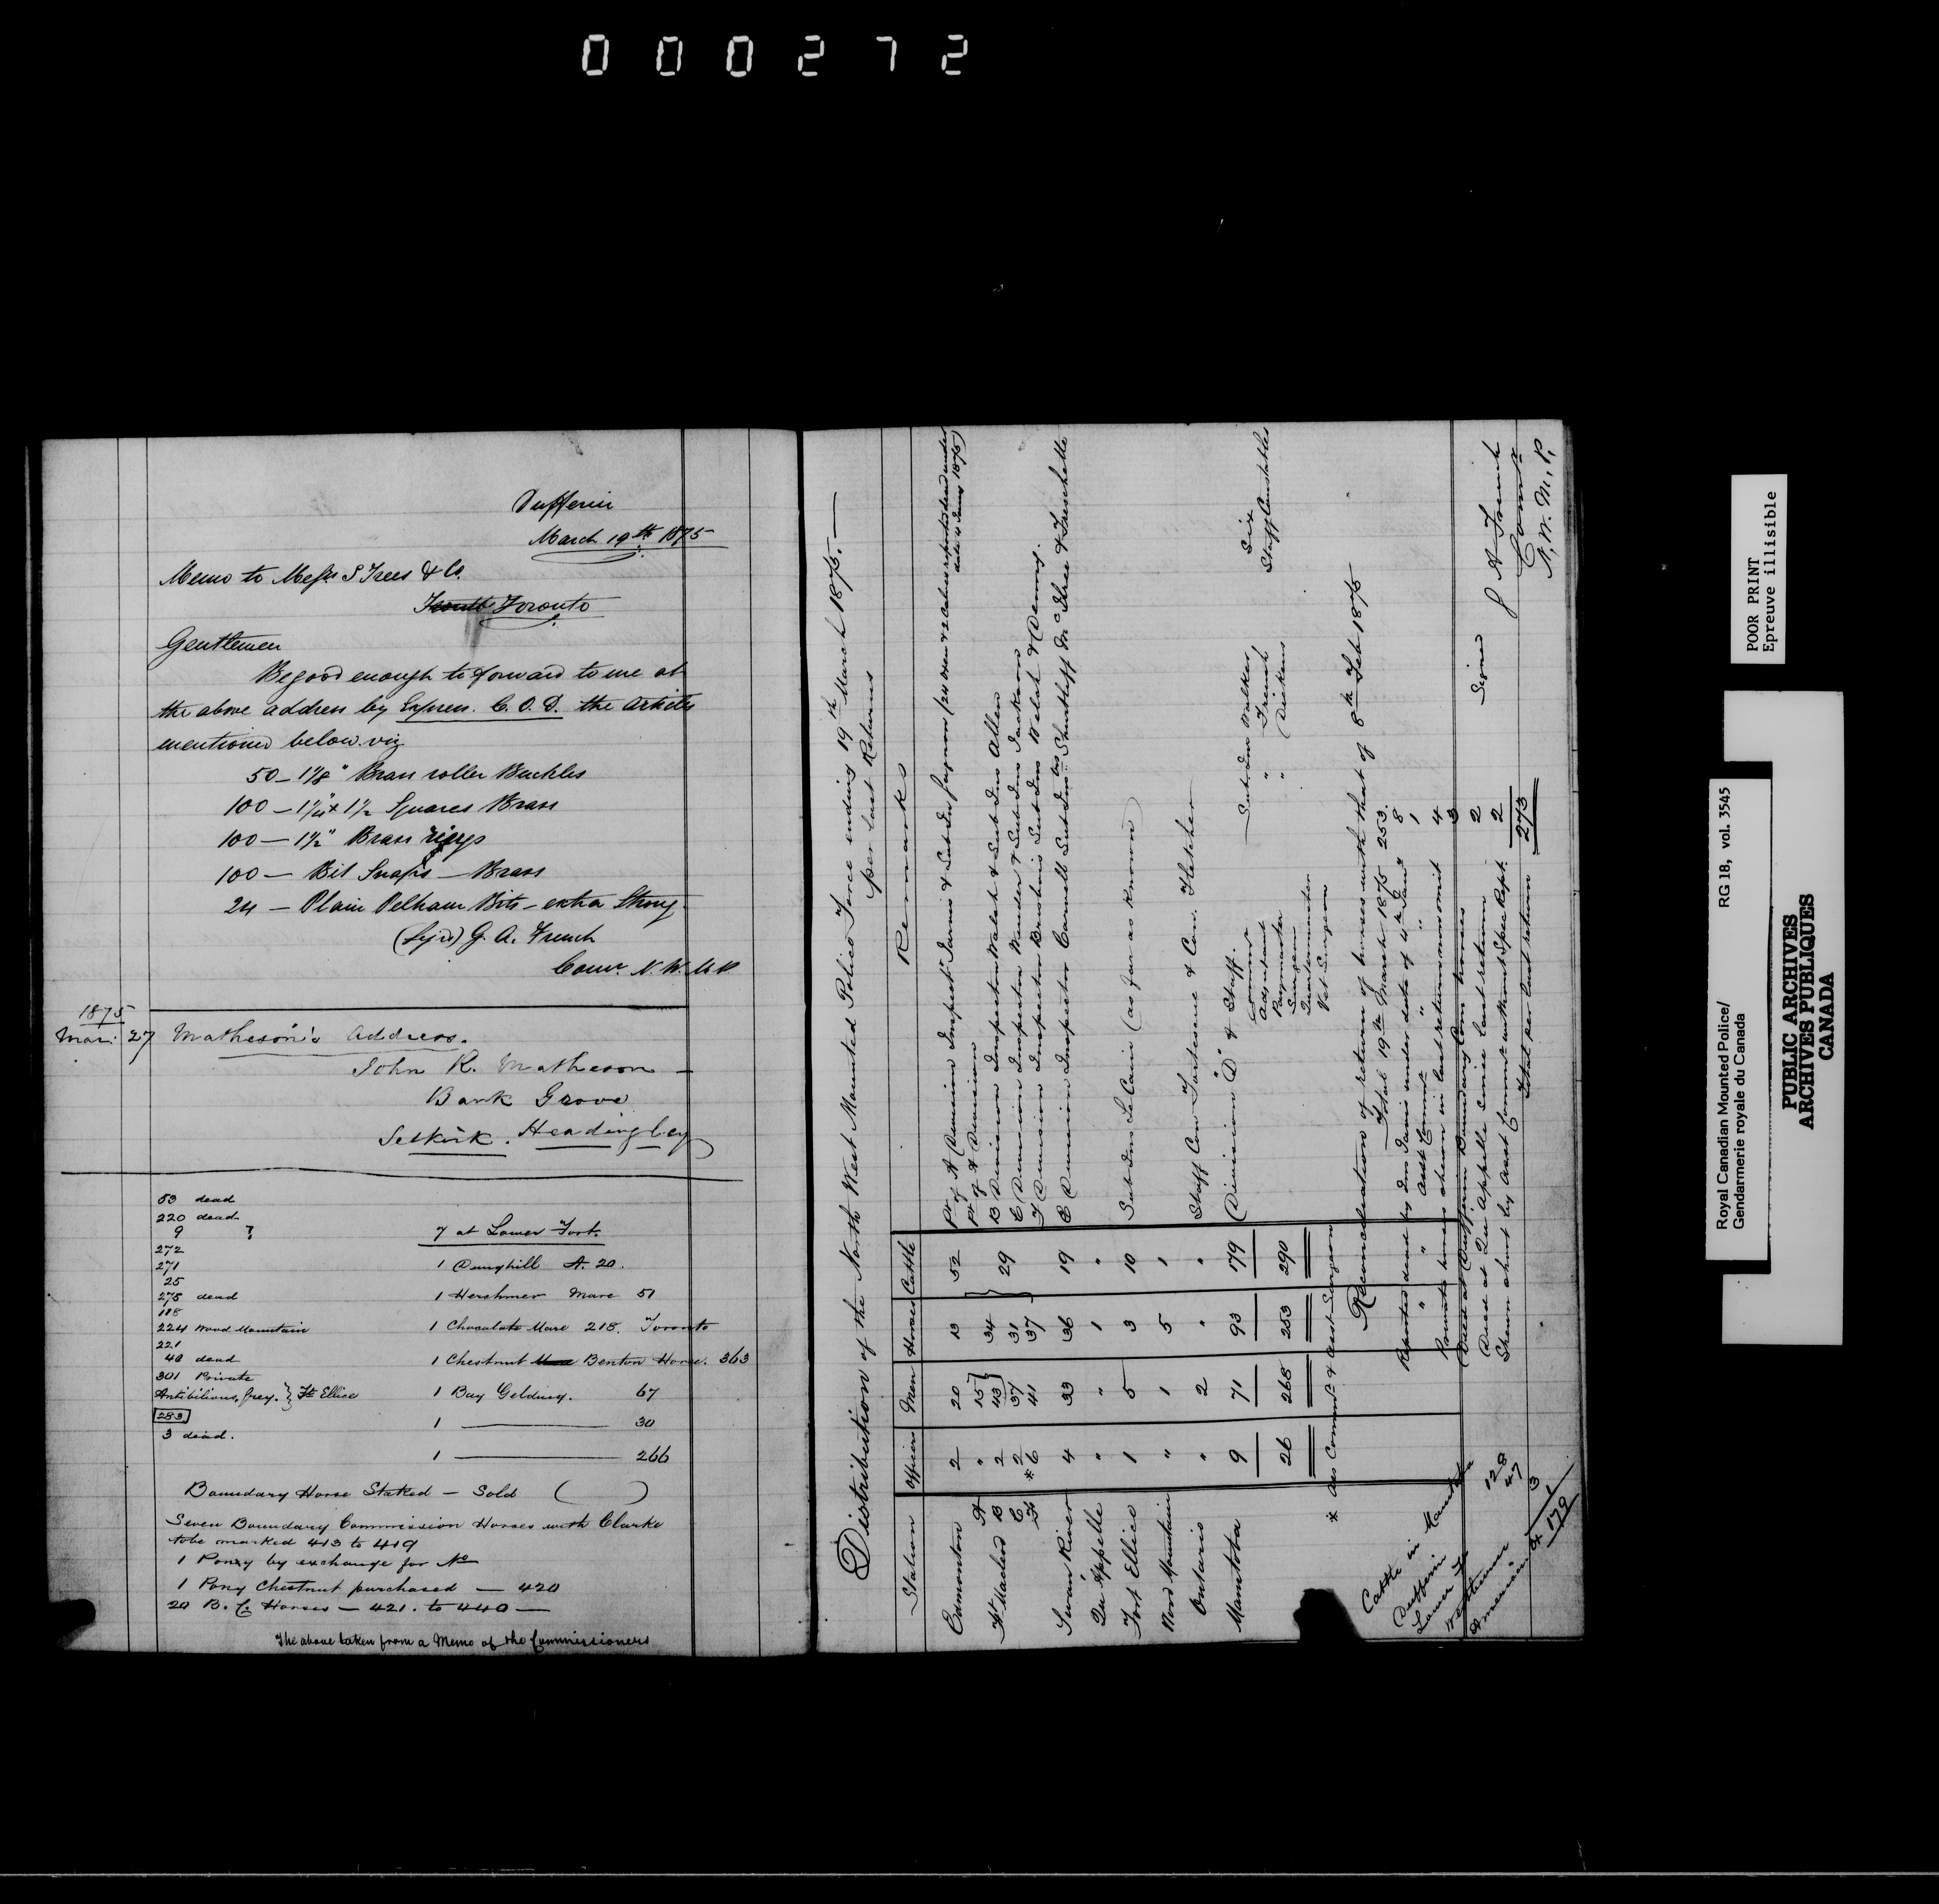 000272
Dufferin
March 19th 1875
Memo to Messrs S Trees & Co.
Toronto
Gentlemen
Be good enough to forward to me at
the above address by Express. C. O. D. the articles
mentioned below. viz
50 - 1 1/8" Brass roller Buckles
100 - 1 1/2 Squares Brass
100 - 1 1/2" Brass rings
100 - Bit Snaps - Brass
24 - Plain Pelham Bits - extra Strong
(Sg'd) G. A. French
Comr. N. W. M. P.
1875
Mar: 27 Matheson's Address.
John R. Matheson -
Bank Grove
Selkirk. Headingley
53 dead
220 dead
9 ?
272
271
25
275 dead
118
224 Wood Mountain
221
40 dead
301 Private
Antibilious, Grey. } Ft Ellice
283
3 dead.
7 at Lower Fort.
1 Dunghill A. 20.
1 Herchmer Mare 51
1 Chocolate Mare 218. Toronto
1 Chestnut Benton Horse. 363
1 Bay Gelding. 67
1 ——— 30
1 ——— 266
Boundary Horse Staked - Sold ( )
Seven Boundary Commission Horses with Clarke
to be marked 413 to 419
1 Pony by exchange for No
1 Pony Chestnut purchased - 420
20 B. C. Horses - 421. to 440 -
The above taken from a Memo of the Commissioners
Distribution of the North West Mounted Police Force ending 19th March 1875. -
per last Returns
Station Officers Men Horses Cattle Remarks
Edmonton 2 20 13 52 Pt of A Division Inspectr Jarvis & Sub Ins Gagnon (24 oxen & 2 calves reported dead under
date 4 Jany 1875)
A " 15 Pt of A Division
Ft Macleod B 2 43 34 B Division Inspector Walsh & Sub Ins Allen
C 2 37 31 29 C Division Inspector Winder & Sub Ins Jackson
F *6 41 37 F Division Inspector Brisebois Sub Ins Welch & Denny.
Swan River 4 33 36 19 E Division Inspector Carvell Sub Insrs Shurtleff McIllree & Frechette
Qu'Appelle " " 1 "
Fort Ellice 1 5 3 10 Sub Ins Le Cain (as far as known)
Wood Mountain " 1 5 1
Ontario " 2 " " Staff Con Fortescue & Con. Fletcher
Manitoba 9 71 93 179 Division "D" & Staff.
Commr
Adjutant
Paymaster
Surgeon
Quartermaster
Vet Surgeon
Sub Ins Walker
" French
" Dickens
Six
Staff Constables
26 268 253 290
* As Commr & Asst Surgeon
Reconcileation of return of horses with that of 8th Feb 1875
Total 19th March 1875 253.
Reported dead by Ins Jarvis under date of 4th Jany 8
" " Asst Commr " " 1
Private horses shewn in last return now omit 4
Died at Dufferin Boundary Com horses 3
Died at Qu Appelle since last return 2
Shewn short by Asst Commr without Spec Rept. 2
Total per last return 273
Signed
G A French
Commr
N. W. M. P.
Cattle in Manitoba
Dufferin 128
Lower Ft 47
Westbourne 3
American Ox 1
179
POOR PRINT
Epreuve illisible
Royal Canadian Mounted Police/ RG 18, vol. 3545
Gendarmerie royale du Canada
PUBLIC ARCHIVES
ARCHIVES PUBLIQUES
CANADA